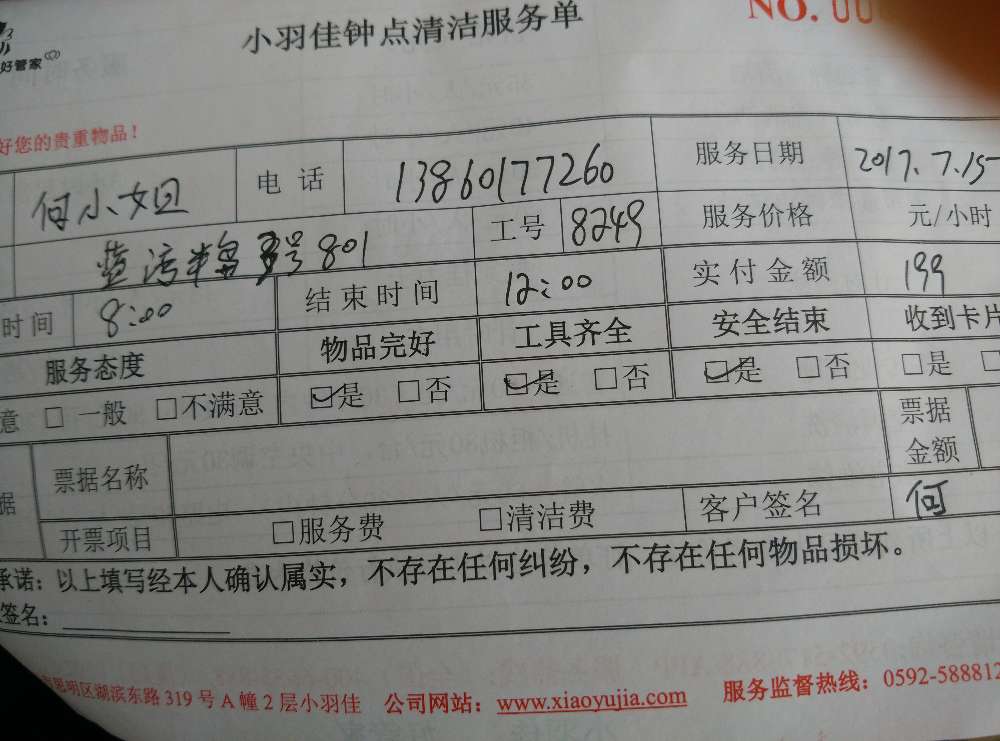 小羽佳钟点清洁服务单
NO. 00
好管家
好您的贵重物品！
何小姐 电话 13860177260 服务日期 2017.7.15
801 工号 8249 服务价格 元/小时
时间 8:00 结束时间 12:00 实付金额 199
服务态度 物品完好 工具齐全 安全结束 收到卡片
意 □一般 □不满意 ☑是 □否 ☑是 □否 ☑是 □否 □是
据 票据名称 票据金额
开票项目 □服务费 □清洁费 客户签名 何
承诺：以上填写经本人确认属实，不存在任何纠纷，不存在任何物品损坏。
签名：
思明区湖滨东路319号A幢2层小羽佳 公司网站：www.xiaoyujia.com 服务监督热线：0592-588812